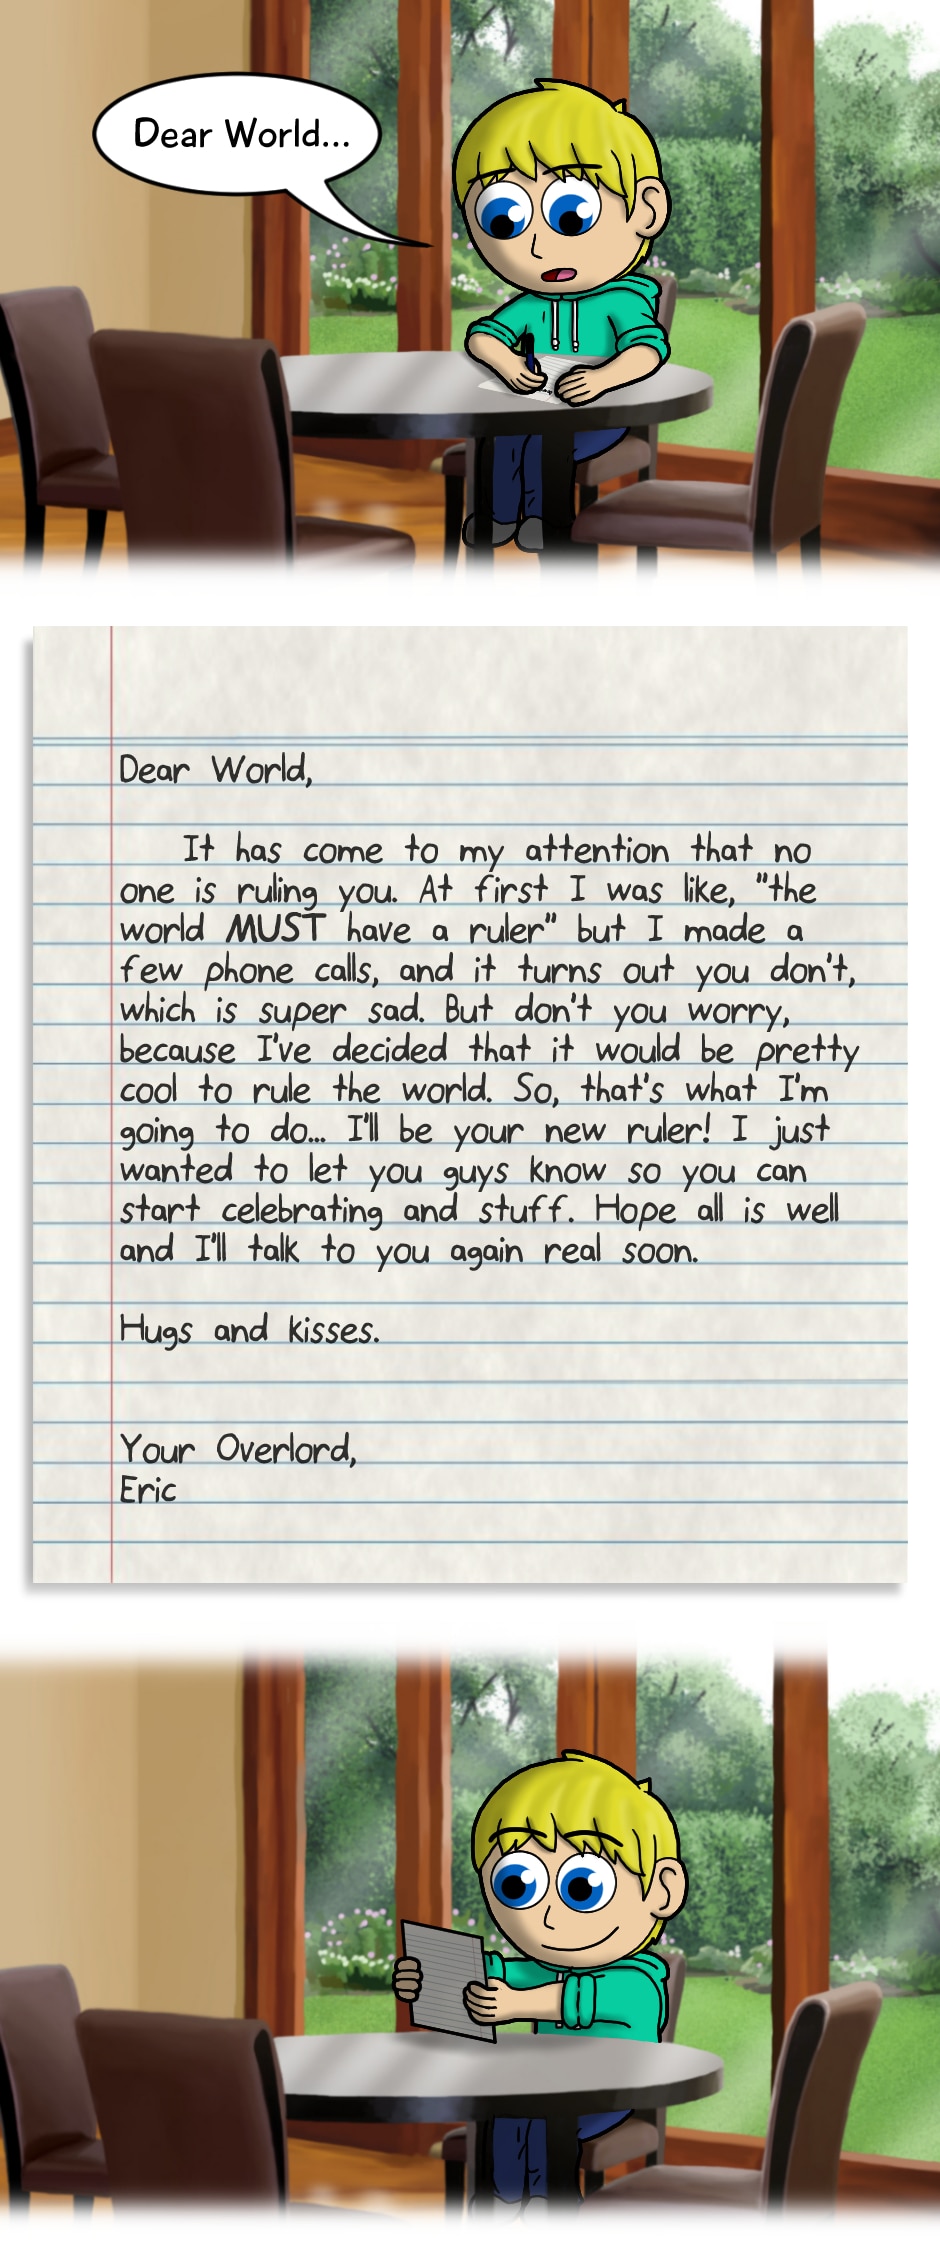 Dear World...
Dear World,
It has come to my attention that no
one is ruling you. At first I was like, "the
world MUST have a ruler" but I made a
few phone calls, and it turns out you don't,
which is super sad. But don't you worry,
because I've decided that it would be pretty
cool to rule the world. So, that's what I'm
going to do... I'll be your new ruler! I just
wanted to let you guys know so you can
start celebrating and stuff. Hope all is well
and I'll talk to you again real soon.
Hugs and kisses.
Your Overlord,
Eric